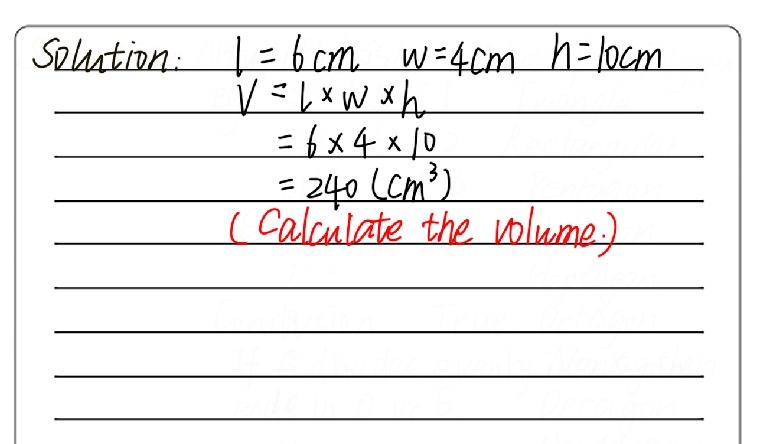 Solution: l = 6cm w=4cm h=10cm
V = L × w × h
= 6 × 4 × 10
= 240 (cm³)
(Calculate the volume.)